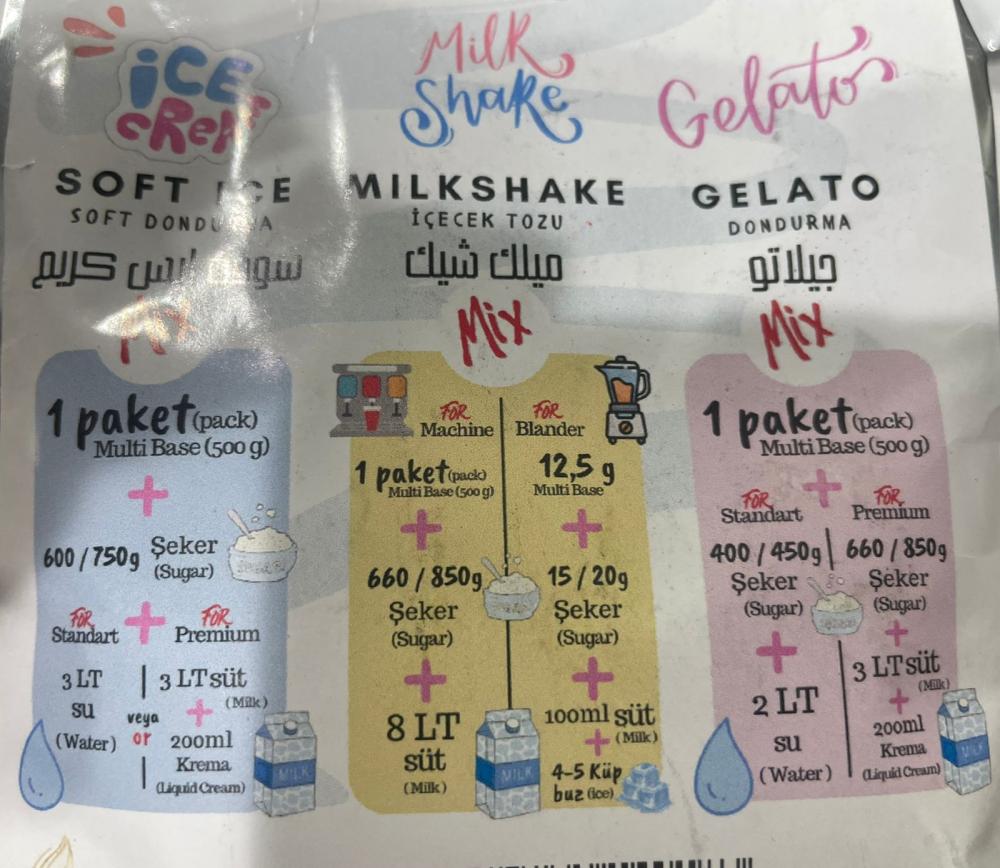 iCE
CREAM
SOFT ICE
SOFT DONDURMA
سوفت ايس كريم
Mix
1 paket (pack)
Multi Base (500 g)
+
600 / 750g Şeker
(Sugar)
+
FOR Standart
FOR Premium
3 LT
su
(Water)
veya
or
3 LT süt
(Milk)
+
200ml
Krema
(Liquid Cream)
MILK
Milk
Shake
MILKSHAKE
İÇECEK TOZU
ميلك شيك
Mix
FOR
Machine
1 paket (pack)
Multi Base (500 g)
+
660 / 850g
Şeker
(Sugar)
+
8 LT
süt
(Milk)
MILK
FOR
Blander
12,5 g
Multi Base
+
15 / 20g
Şeker
(Sugar)
+
100ml süt
(Milk)
+
4-5 Küp
buz (ice)
Gelato
GELATO
DONDURMA
جيلاتو
Mix
1 paket (pack)
Multi Base (500 g)
+
FOR
Standart
400 / 450g
Şeker
(Sugar)
+
2 LT
su
(Water)
FOR
Premium
660 / 850g
Şeker
(Sugar)
+
3 LT süt
(Milk)
+
200ml
Krema
(Liquid Cream)
MILK